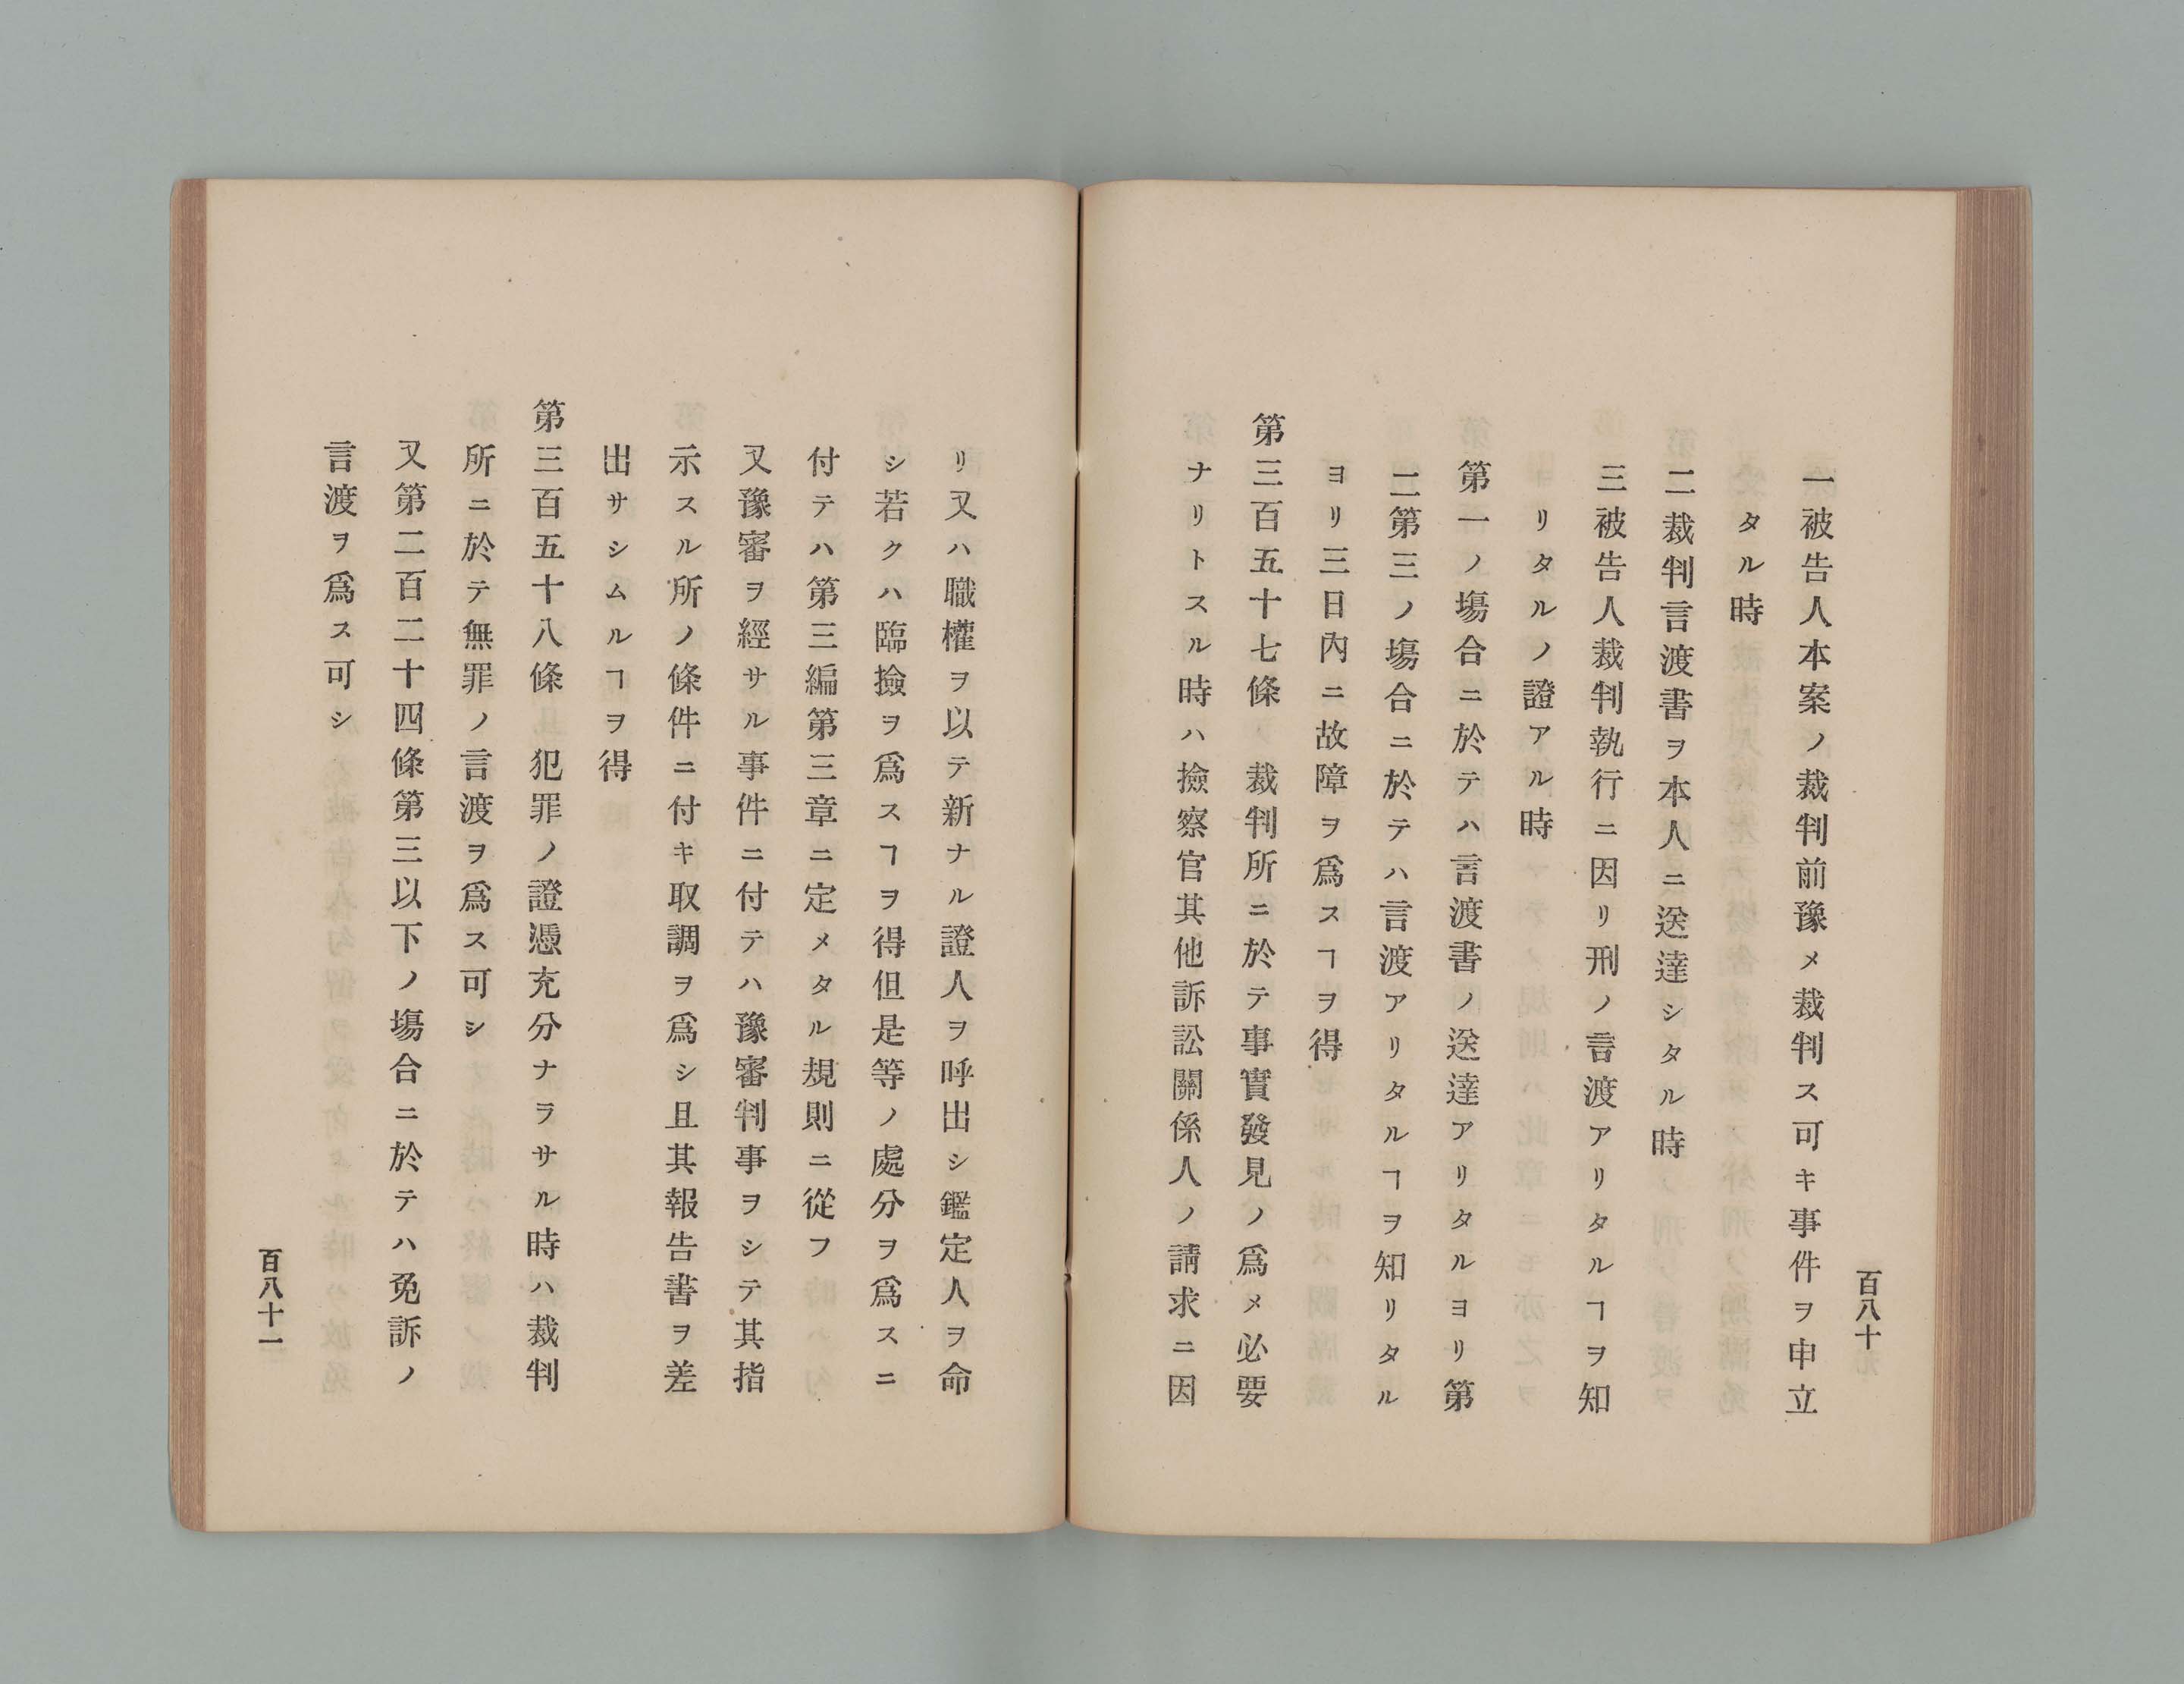 百八十
一被告人本案ノ裁判前豫メ裁判ス可キ事件ヲ申立
タル時
二裁判言渡書ヲ本人ニ送達シタル時
三被告人裁判執行ニ因リ刑ノ言渡アリタルヿヲ知
リタルノ證アル時
第一ノ塲合ニ於テハ言渡書ノ送達アリタルヨリ第
二第三ノ塲合ニ於テハ言渡アリタルヿヲ知リタル
ヨリ三日內ニ故障ヲ爲スヿヲ得
第三百五十七條　裁判所ニ於テ事實發見ノ爲メ必要
ナリトスル時ハ撿察官其他訴訟關係人ノ請求ニ因
リ又ハ職權ヲ以テ新ナル證人ヲ呼出シ鑑定人ヲ命
シ若クハ臨撿ヲ爲スヿヲ得但是等ノ處分ヲ爲スニ
付テハ第三編第三章ニ定メタル規則ニ從フ
又豫審ヲ經サル事件ニ付テハ豫審判事ヲシテ其指
示スル所ノ條件ニ付キ取調ヲ爲シ且其報告書ヲ差
出サシムルヿヲ得
第三百五十八條　犯罪ノ證憑充分ナラサル時ハ裁判
所ニ於テ無罪ノ言渡ヲ爲ス可シ
又第二百二十四條第三以下ノ塲合ニ於テハ免訴ノ
言渡ヲ爲ス可シ
百八十一